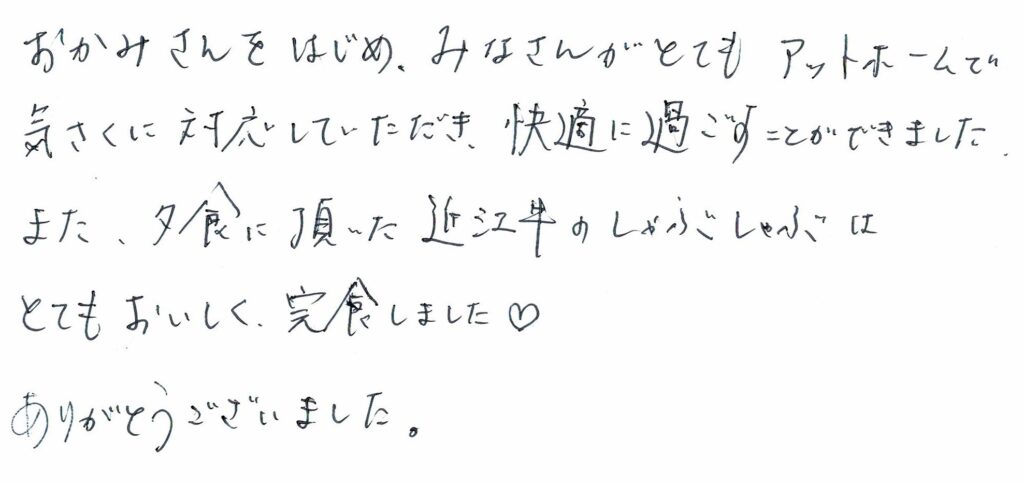 おかみさんをはじめ、みなさんがとても アットホームで
気さくに対応していただき、快適に過ごすことができました.
また、夕食に頂いた近江牛のしゃぶしゃぶは
とてもおいしく、完食しました♡
ありがとうございました。